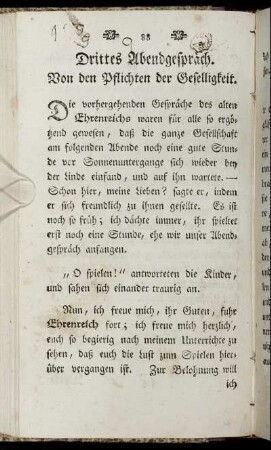 88
Drittes Abendgespräch.
Von den Pflichten der Geselligkeit.
Die vorhergehenden Gespräche des alten
Ehrenreichs waren für alle so ergö-
tzend gewesen, daß die ganze Gesellschaft
am folgenden Abende noch eine gute Stun-
de vor Sonnenuntergange sich wieder bey
der Linde einfand, und auf ihn wartete. —
Schon hier, meine Lieben? sagte er, indem
er sich freundlich zu ihnen gesellte. Es ist
noch so früh; ich dächte immer, ihr spieltet
erst noch eine Stunde, ehe wir unser Abend-
gespräch anfangen.
„O spielen!“ antworteten die Kinder,
und sahen sich einander traurig an.
Nun, ich freue mich, ihr Guten, fuhr
Ehrenreich fort; ich freue mich herzlich,
euch so begierig nach meinem Unterrichte zu
sehen, daß euch die Lust zum Spielen hier-
über vergangen ist. Zur Belohnung will
ich